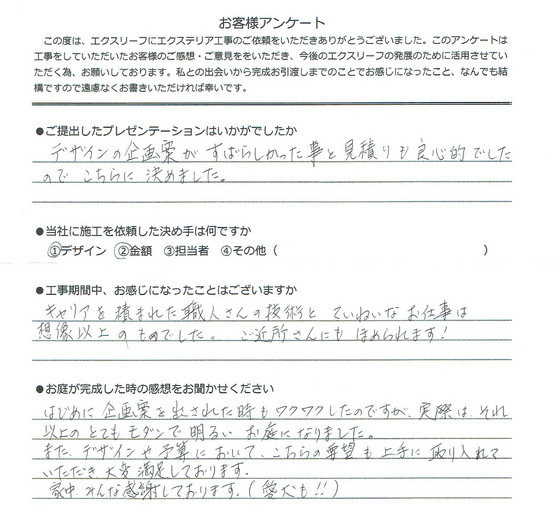 お客様アンケート
この度は、エクスリーフにエクステリア工事のご依頼をいただきありがとうございました。このアンケートは
工事をしていただいたお客様のご感想・ご意見をいただき、今後のエクスリーフの発展のために活用させてい
ただく為、お願いしております。私との出会いから完成お引渡しまでのことでお感じになったこと、なんでも結
構ですので遠慮なくお書きいただければ幸いです。
●ご提出したプレゼンテーションはいかがでしたか
デザインの企画案がすばらしかった事と見積りも良心的でした
のでこちらに決めました。
●当社に施工を依頼した決め手は何ですか
①デザイン ②金額 ③担当者 ④その他（ ）
●工事期間中、お感じになったことはございますか
キャリアを積まれた職人さんの技術とていねいなお仕事は
想像以上のものでした。ご近所さんにもほめられます！
●お庭が完成した時の感想をお聞かせください
はじめに企画案を出された時もワクワクしたのですが、実際は、それ
以上のとてもモダンで明るいお庭になりました。
また、デザインや予算において、こちらの要望も上手に取り入れて
いただき大変満足しております。
家中みんな感謝しております。（愛犬も!!）